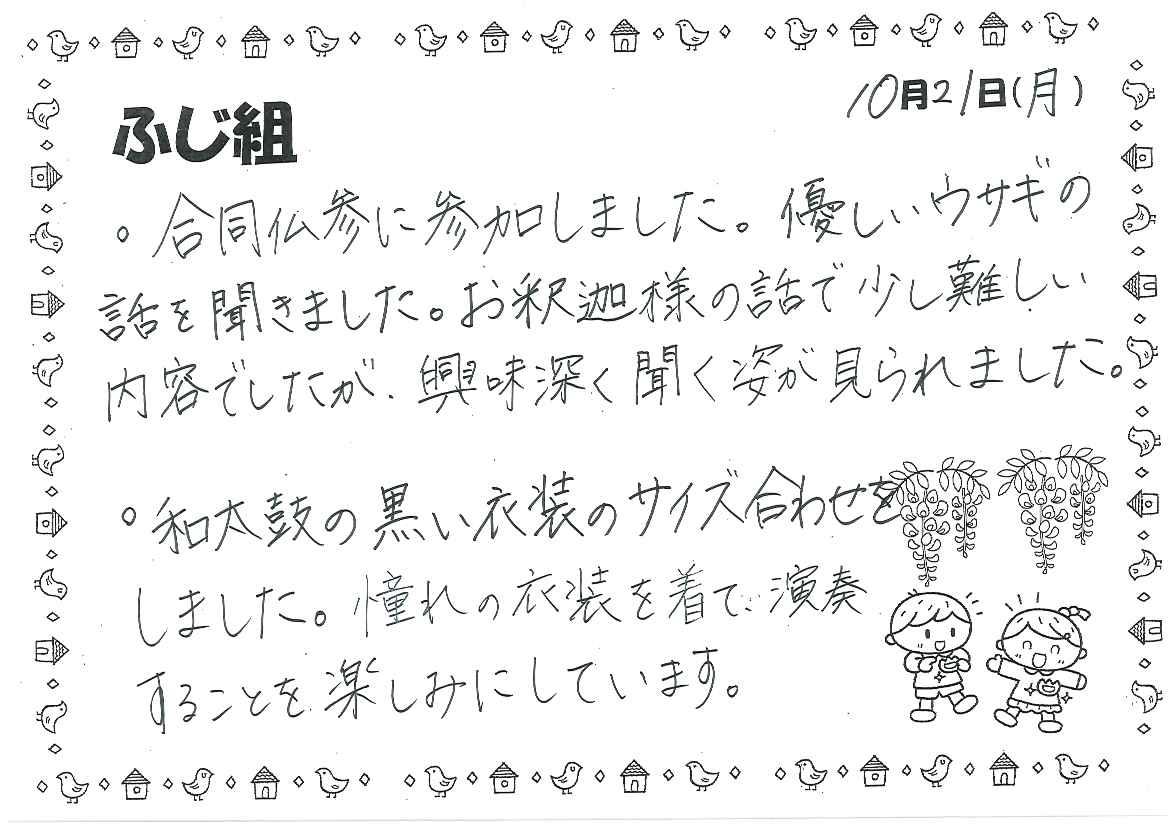 10月21日(月)
ふじ組
。合同仏参に参加しました。優しいウサギの
話を聞きました。お釈迦様の話で少し難しい
内容でしたが、興味深く聞く姿が見られました。
。和太鼓の黒い衣装のサイズ合わせを
しました。憧れの衣装を着て、演奏
することを楽しみにしています。